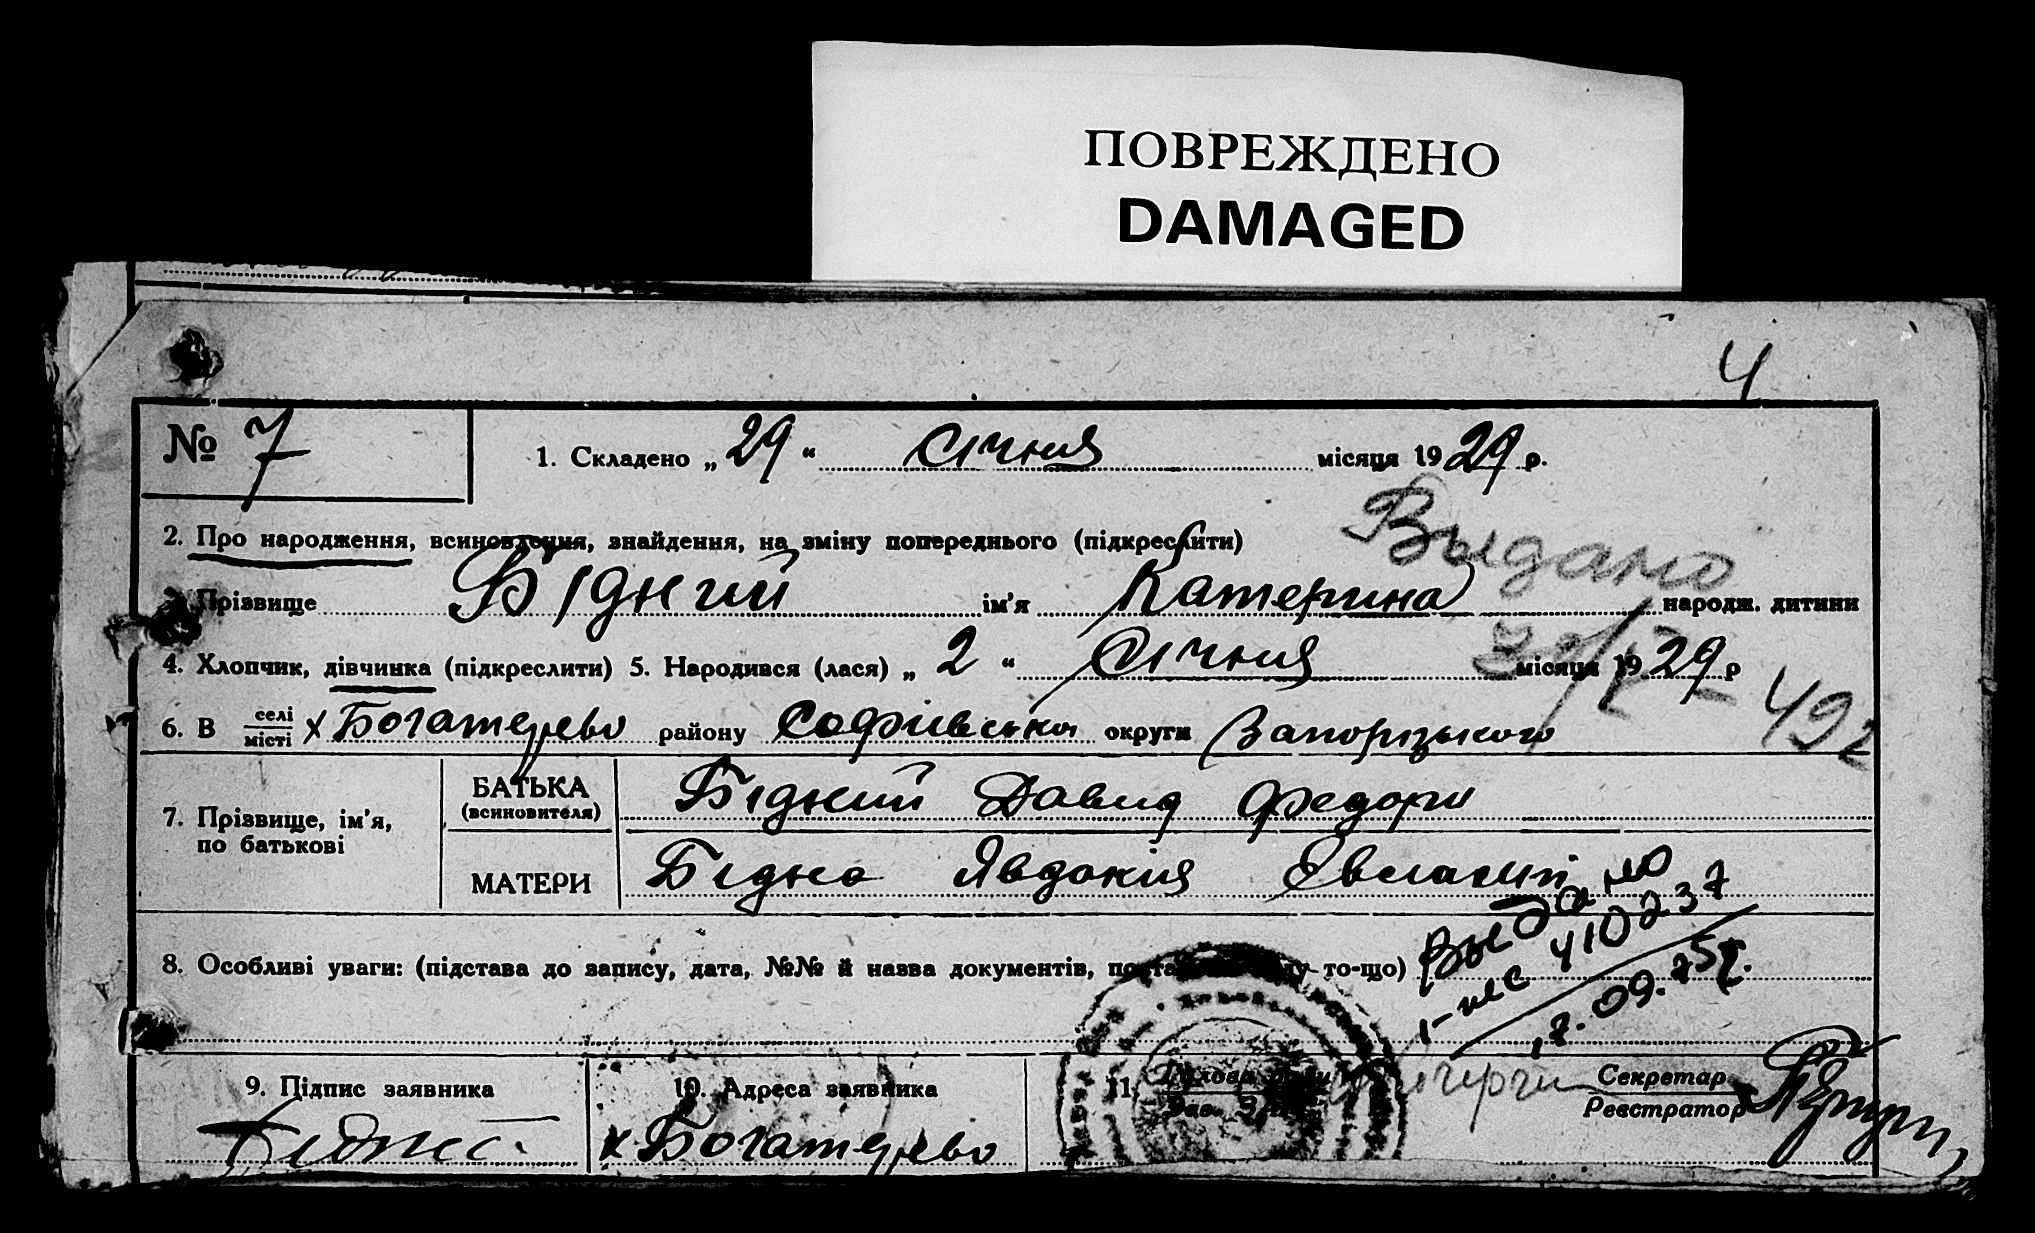 ПОВРЕЖДЕНО
DAMAGED
4
№ 7
1. Складено „ 29 “ січня місяця 1929 р.
2. Про народження, всиновлення, знайдення, на зміну попереднього (підкреслити)
Выдано
3. Прізвище Бідний ім’я Катерина народж. дитини
4. Хлопчик, дівчинка (підкреслити) 5. Народився (лася) „ 2 “ січня місяця 1929 р
492
6. В селі місті х Богатерево району Софиевського округи Запорізького
7. Прізвище, ім’я, по батькові
БАТЬКА (всиновителя) Бідний Давид Федоро
МАТЕРИ Бідна Явдокия
8. Особливі уваги: (підстава до запису, дата, №№ й назва документів, то-що)
Выдано
410237
9. Підпис заявника
10. Адреса заявника
х Богатерево
11.
Секретар
Реєстратор